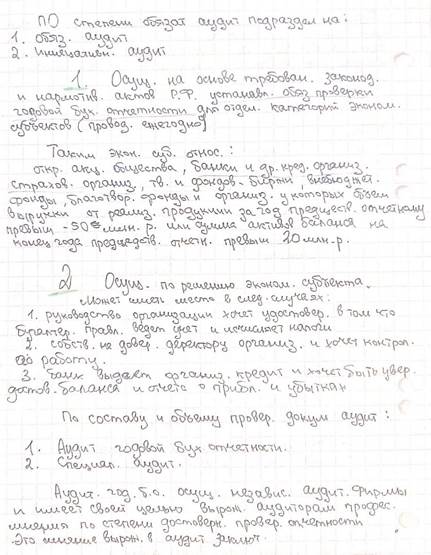 По степени обязат аудит подраздел на:
1. Обяз. аудит
2. Инициативн. аудит
1. Осущ. на основе требован. законод.
и нармотив. актов Р.Ф. устанавл. обяз проверки
годовой бух. отчетности для отдел. категорий эконом.
субъектов (провод. ежегодно)
Таким экон. суб. относ.:
откр. акц. общества, банки и др. кред. организ.
страхов. организ, тв. и фондов. биржи, внебюджет.
фонды, благотвор. фонды и организ. у которых объем
выручки от реализ. продукции за год предшеств. отчетному
превыш - 50 млн. р. или сумма активов баланса на
конец года предшедств. отчетн. превыш 20 млн. р.
2 Осущ. по решению эконом. субъекта.
Может иметь место в след. случаях:
1. руководство организации хочет удостовер. в том что
бухгалтер. правл. ведет учет и исчисляет налоги
2. собств. не довер. деректору организ. и хочет контрол.
его работу.
3. банк выдает организ. кредит и хочет быть увер.
достов. баланса и отчета о прибыл. и убытках
По составу и объему провер. докум аудит:
1. Аудит годовой бух. отчетности.
2. Специал. аудит.
Аудит. год. б.о. осущ. независ. аудит. фирмы
и имеет своей целью выраж. аудиторам професс.
мнения по степени достоверн. провер. отчетности
Это мнение выраж. в аудит заключ.